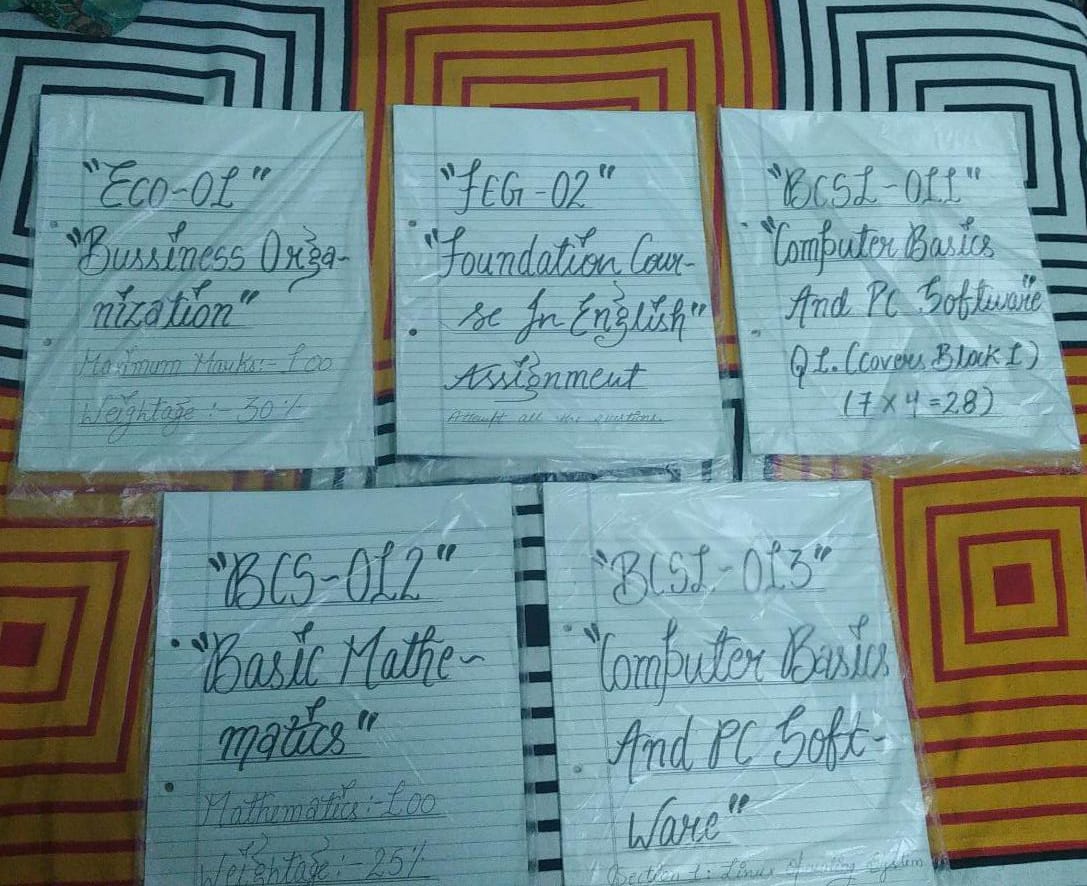 "ECO-01"
"Bussiness Orga-
nization"
Maximum Marks:- 100
Weightage :- 30%
"FEG-02"
"Foundation Cour-
se In English"
Assignment
Attempt all the questions.
"BCSL-011"
"Computer Basics
And PC Software"
Q1. (Covers Block 1)
(7 x 4 = 28)
"BCS-012"
"Basic Mathe-
matics"
Mathematics :- 100
Weightage :- 25%
"BCSL-013"
"Computer Basics
And PC Soft-
Ware"
Section 1: Linux Operating System